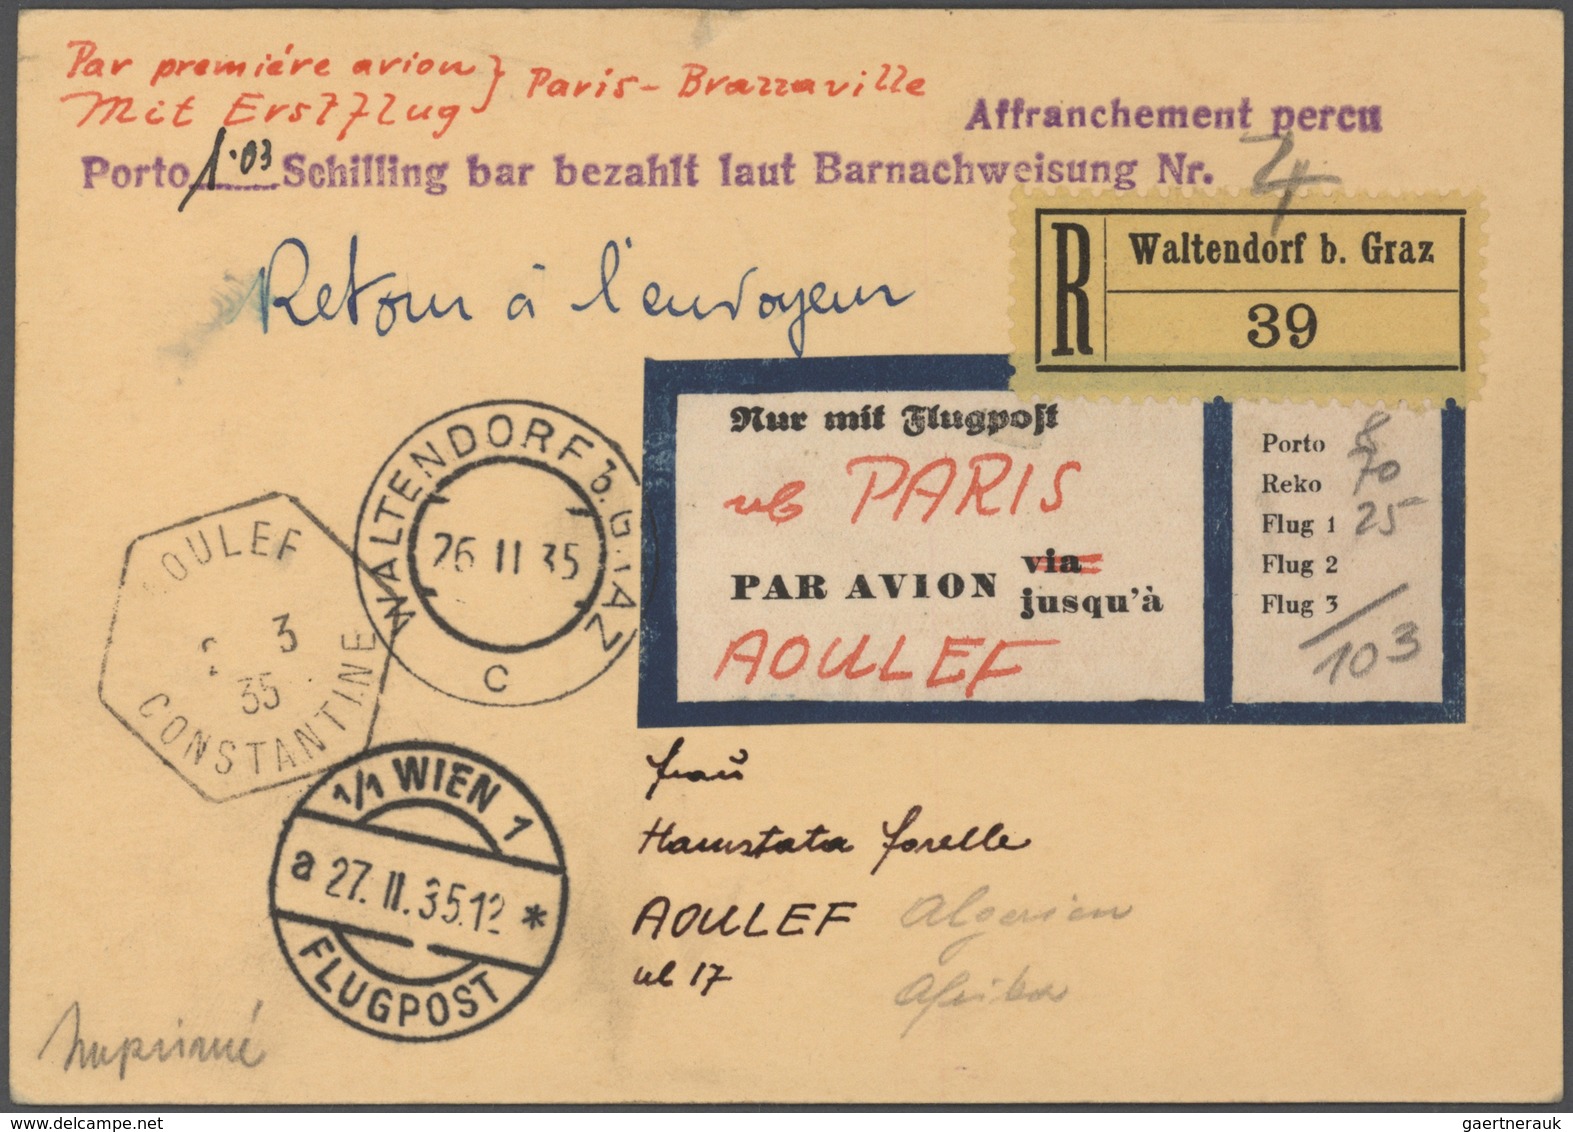 Par premiére avion } Paris - Brazzaville
Mit Erstflug
Affranchement percu
Porto 1.03 Schilling bar bezahlt laut Barnachweisung Nr. 4
R Waltendorf b. Graz
39
Retour à l'envoyeur
Nur mit Flugpost
ab PARIS
PAR AVION via
jusqu'à
AOULEF
Porto 8
Reko 70
Flug 1 25
Flug 2
Flug 3
103
WALTENDORF B. GRAZ
26 II 35
C
AOULEF
2 3
35
CONSTANTINE
1/1 WIEN 1
a 27. II. 35.12 *
FLUGPOST
Frau
Forelle
AOULEF Algerien
Afrika
Imprimé
www.delcampe.net
gaertnerauk